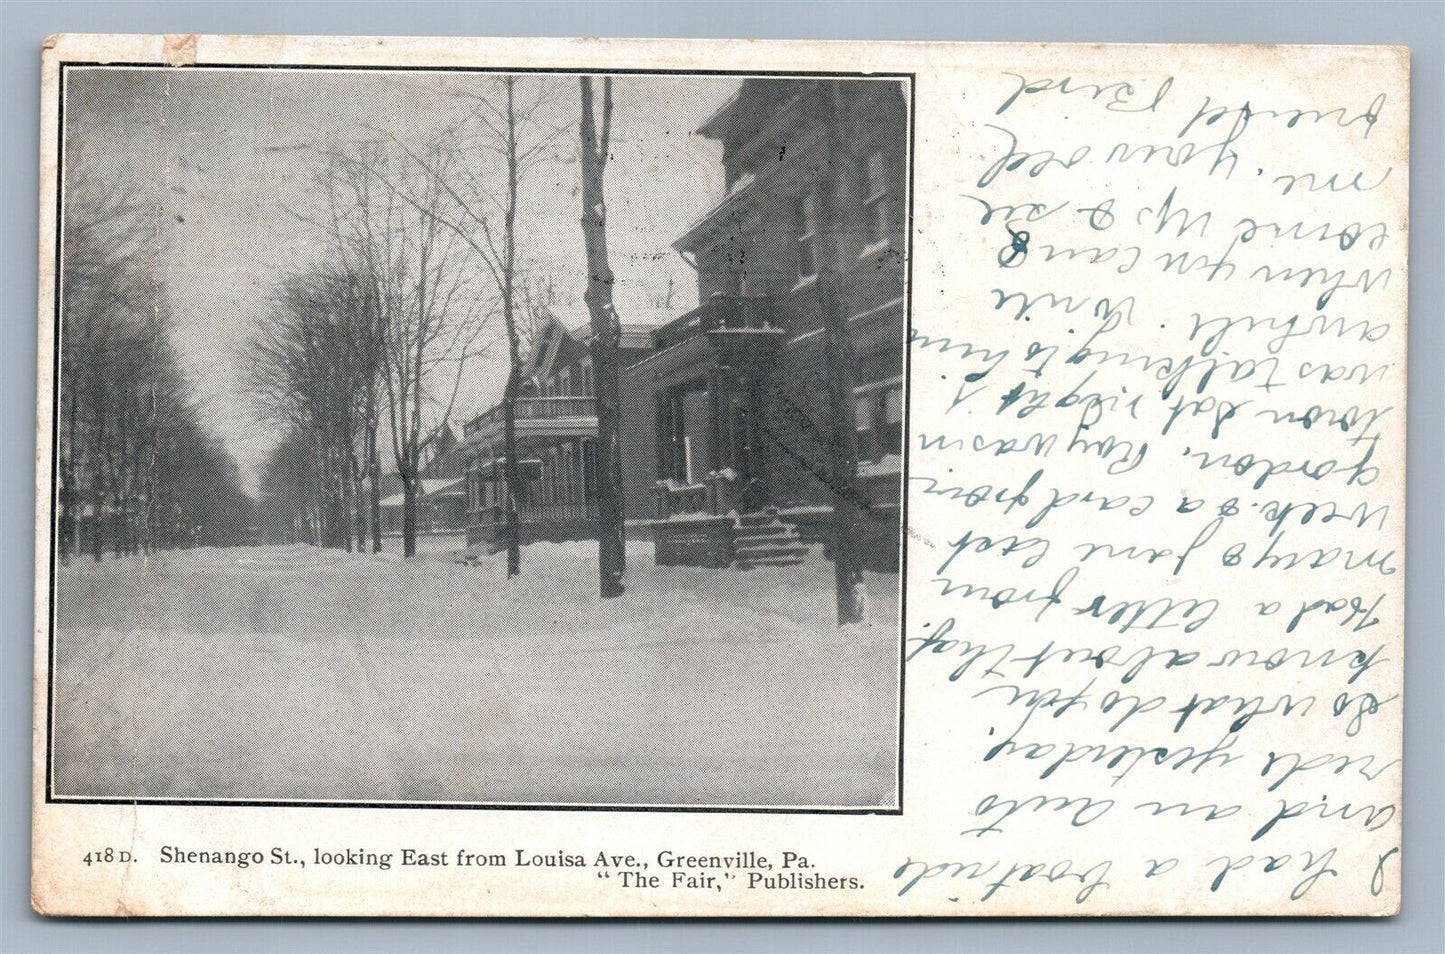 418 D. Shenango St., looking East from Louisa Ave., Greenville, Pa.
"The Fair," Publishers.
I had a boatride
and an auto
ride yesterday.
So what do you
know about that.
Had a letter from
mary & Jane last
week & a card from
Gordon. Ray was in
town Sat. night I
was talking to him
awhile. Write
when you can &
come up & see
me. Your old
friend Bird